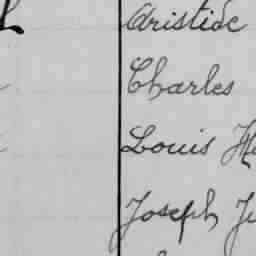 Aristide
Charles
Louis
Joseph